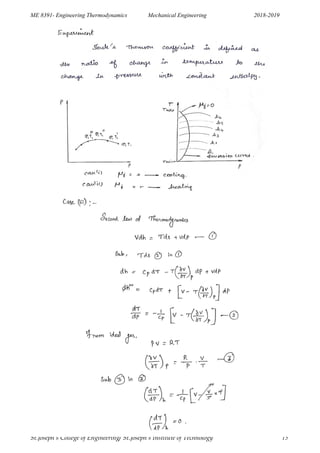 ME 8391- Engineering Thermodynamics Mechanical Engineering 2018-2019
Experiment
Joule's Thomson coefficient is defined as
the ratio of change in temperature to the
change in pressure with constant enthalpy.
P
P
T
Tmax
μj=0
Inversion curve
Tmin
P
μj = + → cooling
μj = - → heating
Case (i) :-
Second law of Thermodynamics
Vdh = Tds + vdp — ①
Sub, Tds ② in ①
dh = Cp dT - T(∂V/∂T)p dp + vdp
dh = CpdT + [V - T(∂V/∂T)p] dp
dT/dp = -1/Cp [V - T(∂V/∂T)p] — ②
From ideal gas,
PV = RT
(∂V/∂T)p = R/P = V/T — ③
Sub ③ in ②
(dT/dP)h = -1/Cp [V - V/T × T]
(dT/dP)h = 0.
St.Joseph's College of Engineering/ St.Joseph's Institute of Technology 13